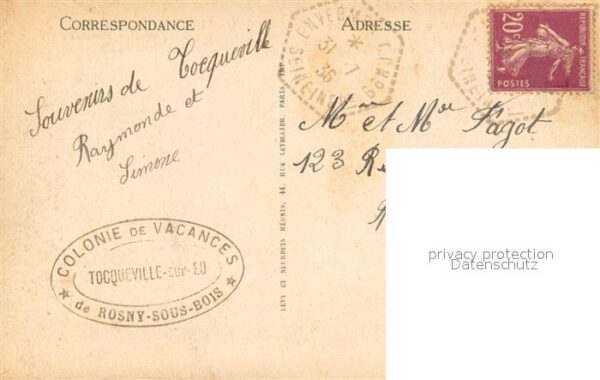 CORRESPONDANCE
Souvenirs de Tocqueville
Raymonde et
Simone
COLONIE DE VACANCES
TOCQUEVILLE-SUR-EU
de ROSNY-SOUS-BOIS
LEVY ET NEURDEIN RÉUNIS, 44, RUE LETELLIER, PARIS, IMP.
ADRESSE
ENVERMEU
31 * 7
36
SEINE-INF
20c
REPUBLIQUE FRANÇAISE
POSTES
Mme et Mr Fagot
123 R
privacy protection
Datenschutz